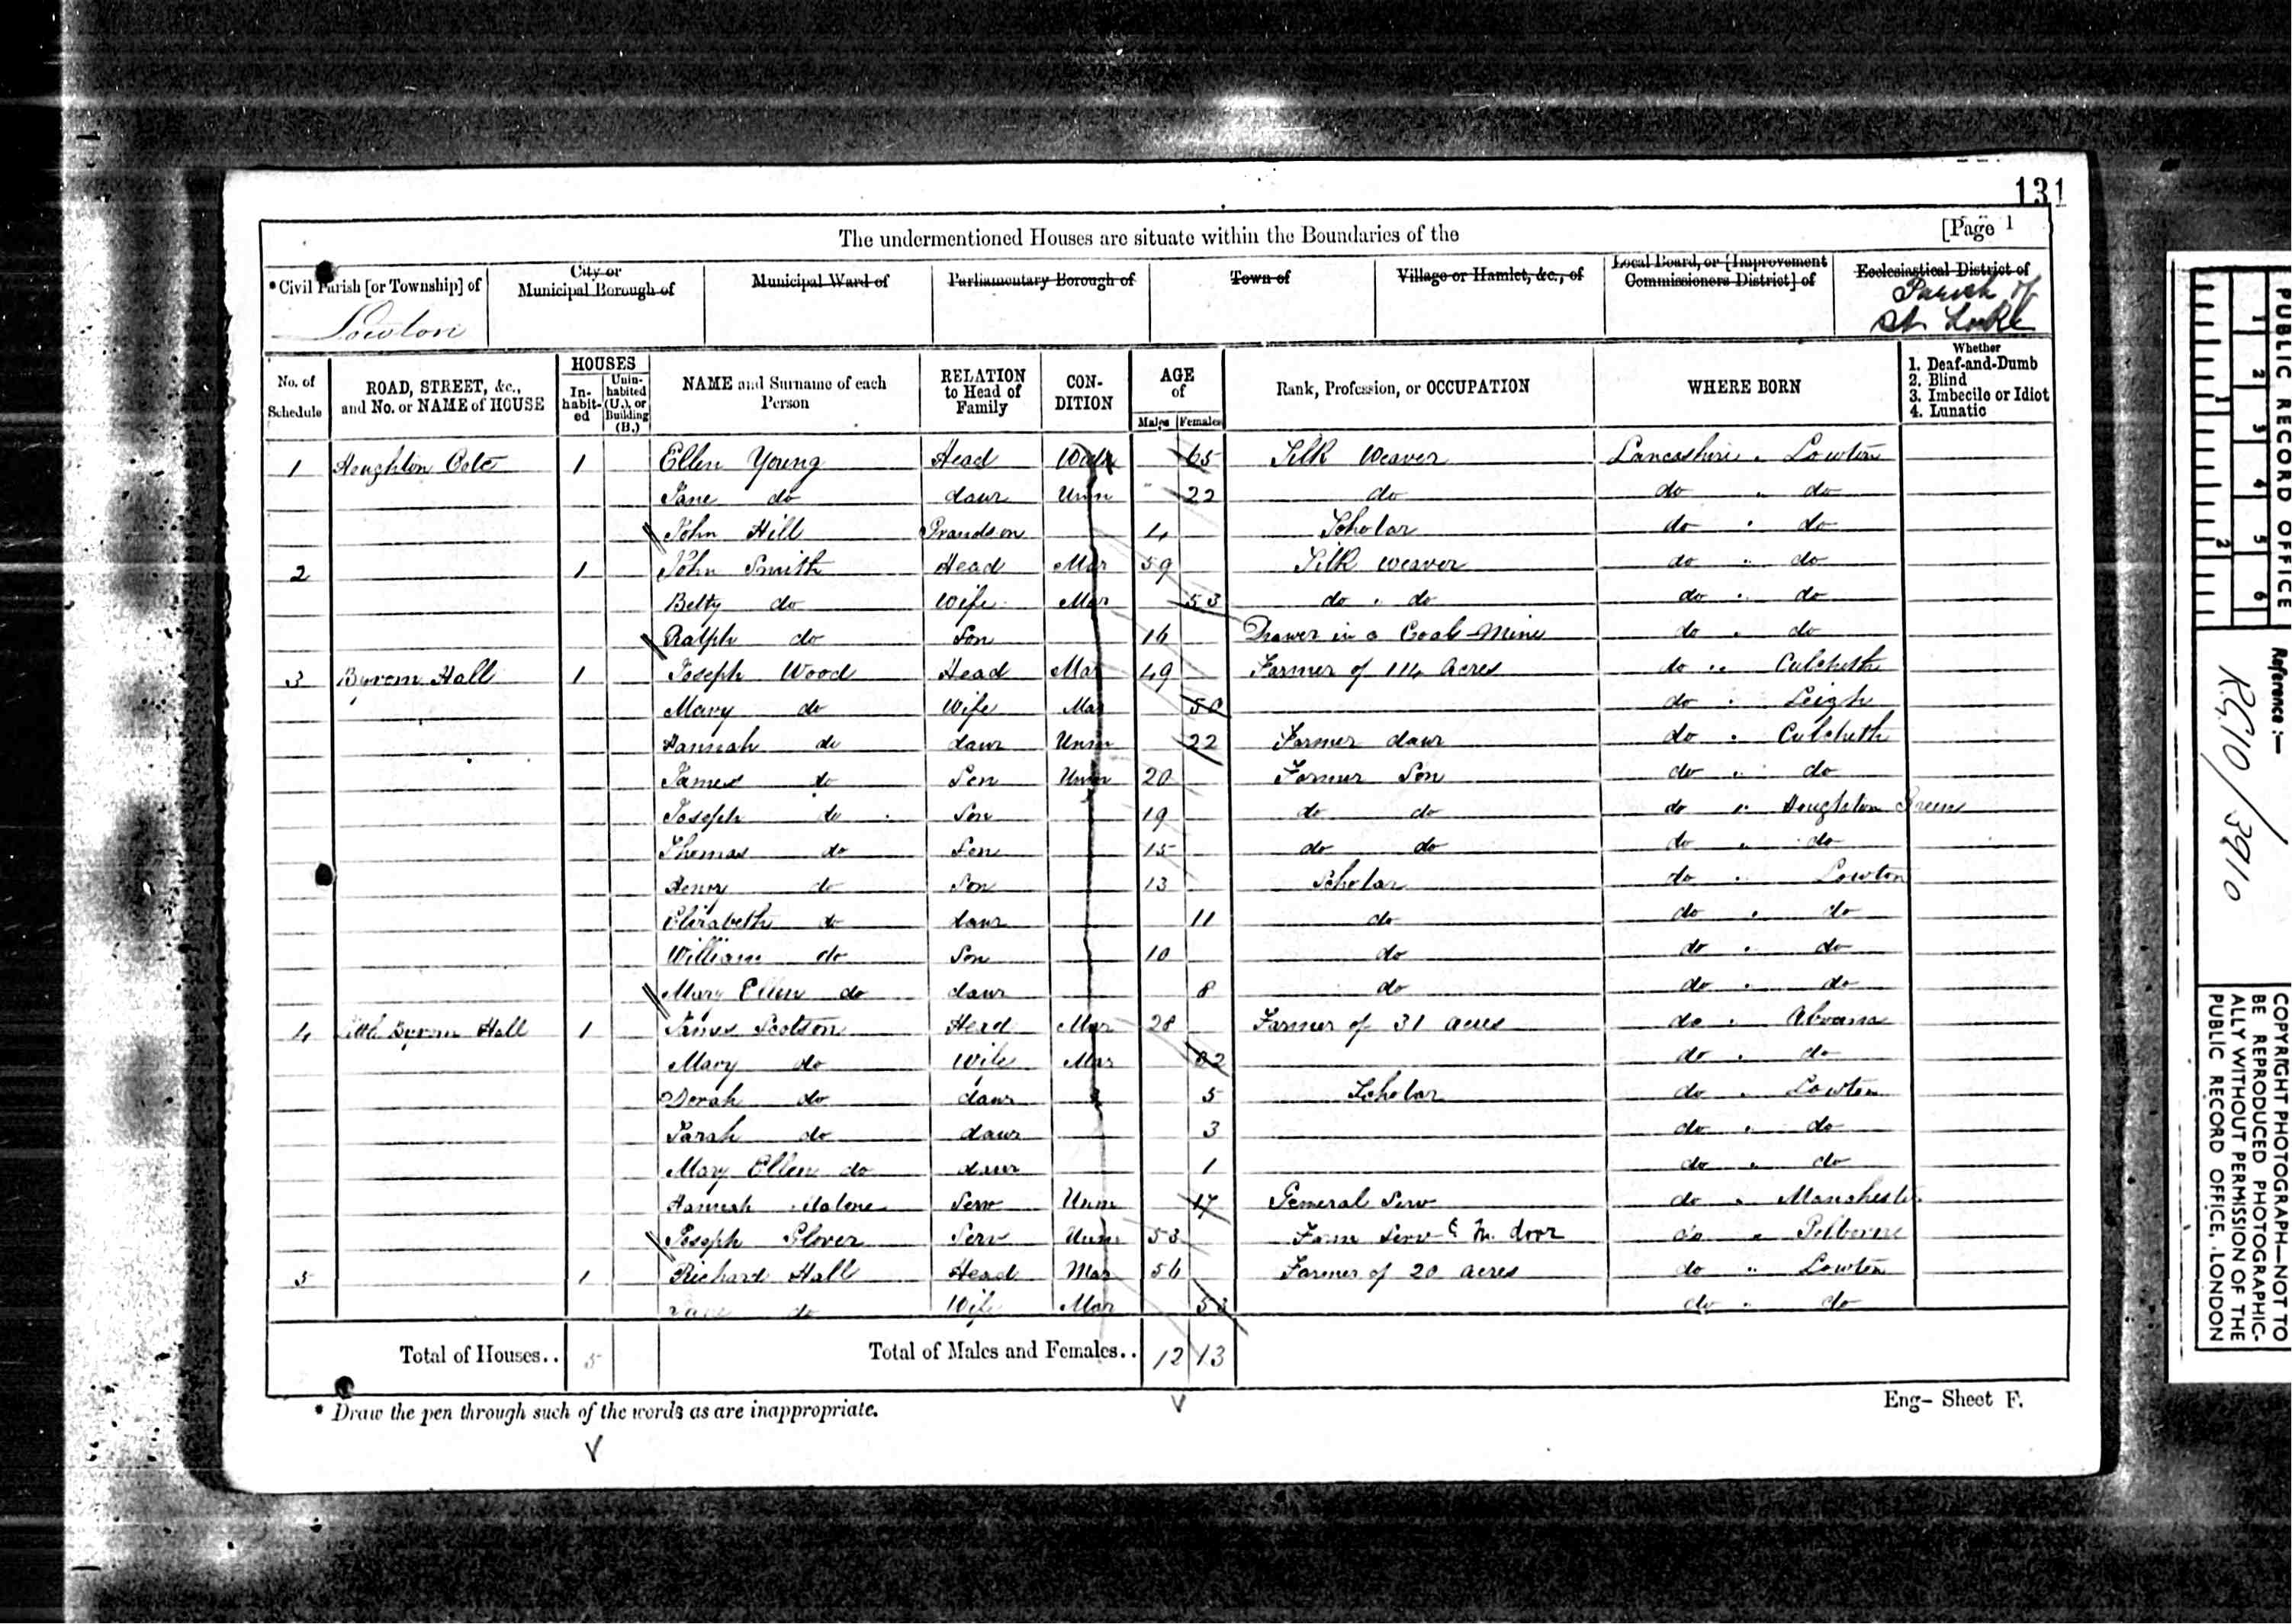 131
[Page 1
The undermentioned Houses are situate within the Boundaries of the
*Civil Parish [or Township] of City or Municipal Borough of Municipal Ward of Parliamentary Borough of Town of Village or Hamlet, &c., of Local Board, or [Improvement Commissioners District] of Ecclesiastical District of
Lowton Parish of St Luke
No. of Schedule ROAD, STREET, &c., and No. or NAME of HOUSE HOUSES Inhabited Uninhabited (U.), or Building (B.) NAME and Surname of each Person RELATION to Head of Family CONDITION AGE of Males Females Rank, Profession, or OCCUPATION WHERE BORN Whether 1. Deaf-and-Dumb 2. Blind 3. Imbecile or Idiot 4. Lunatic
1 Houghton 1 Ellen Young Head 65 Silk Weaver Lancashire Lowton
Jane do daur Unm 22 do do do
John Hill Grandson 4 Scholar do do
2 1 John Smith Head Mar 59 Silk weaver do do
Betty do Wife Mar 53 do do do do
Ralph do Son 16 Drawer in a Coal Mine do do
3 Byrom Hall 1 Joseph Wood Head Mar 49 Farmer of 114 acres do Culcheth
Mary do Wife Mar 50 do Leigh
Hannah do daur Unm 22 Farmer daur do Culcheth
James do Son Unm 20 Farmer Son do do
Joseph do Son 19 do do do Houghton Green
Thomas do Son 15 do do do do
Henry do Son 13 Scholar do Lowton
Elizabeth do daur 11 do do do
William do Son 10 do do do
Mary Ellen do daur 8 do do do
4 Little Byrom Hall 1 James Scotson Head Mar 28 Farmer of 31 acres do Abram
Mary do Wife Mar do do
Dorah do daur 5 Scholar do Lowton
Sarah do daur 3 do do
Mary Ellen do daur 1 do do
Hannah Malone Serv Unm 17 General Serv do Manchester
Joseph Glover Serv Unm 53 Farm Serv In door do
5 1 Richard Hall Head Mar 56 Farmer of 20 acres do Lowton
do Wife Mar 53 do do
Total of Houses.. 5 Total of Males and Females.. 12 13
* Draw the pen through such of the words as are inappropriate.
Eng- Sheet F.
PUBLIC RECORD OFFICE
1 2 3 4 5 6
1 2
Reference :-
R.G.10/3910
COPYRIGHT PHOTOGRAPH—NOT TO
BE REPRODUCED PHOTOGRAPHIC-
ALLY WITHOUT PERMISSION OF THE
PUBLIC RECORD OFFICE, LONDON